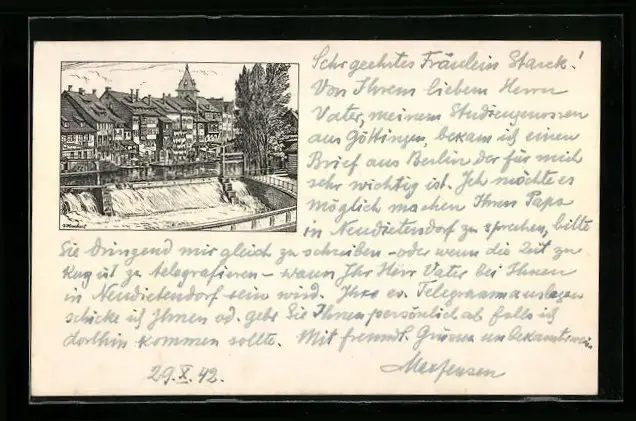 Sehr geehrtes Fräulein Starck!
Von Ihrem lieben Herrn
Vater, meinem Studiengenossen
aus Göttingen, bekam ich einen
Brief aus Berlin der für mich
sehr wichtig ist. Ich möchte es
möglich machen Ihren Papa
in Neudietendorf zu sprechen, bitte
Sie dringend mir gleich zu schreiben - oder wenn die Zeit zu
kurz ist zu telegrafieren - wann Ihr Herr Vater bei Ihnen
in Neudietendorf sein wird. Ihre ev. Telegrammauslagen
schicke ich Ihnen od. gebe Sie Ihnen persönlich ab falls ich
dorthin kommen sollte. Mit freundl. Grüssen unbekannterw.
29.X.42.